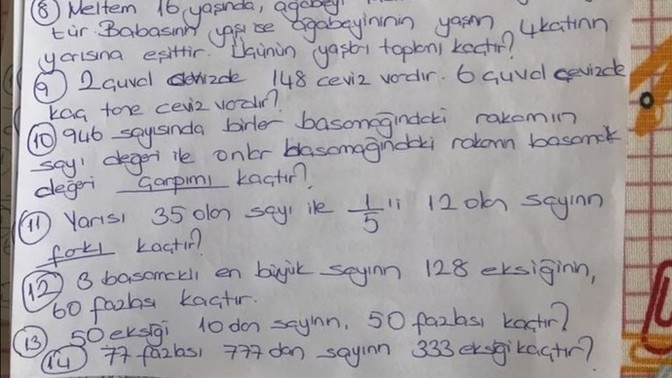 8) Meltem 16 yaşında, ağabeyi
tür. Babasının yaşı ise ağabeyininin yaşının 4 katının
yarısına eşittir. Üçünün yaşları toplamı kaçtır?
9) 2 çuval cevizde 148 ceviz vardır. 6 çuval cevizde
kaç tane ceviz vardır?
10) 946 sayısında birler basamağındaki rakamın
sayı değeri ile onlar basamağındaki rakamın basamak
değeri çarpımı kaçtır?
11) Yarısı 35 olan sayı ile 1/5'i 12 olan sayının
farkı kaçtır?
12) 3 basamaklı en büyük sayının 128 eksiğinin,
60 fazlası kaçtır.
13) 50 eksiği 10 olan sayının, 50 fazlası kaçtır?
14) 77 fazlası 777 olan sayının 333 eksiği kaçtır?